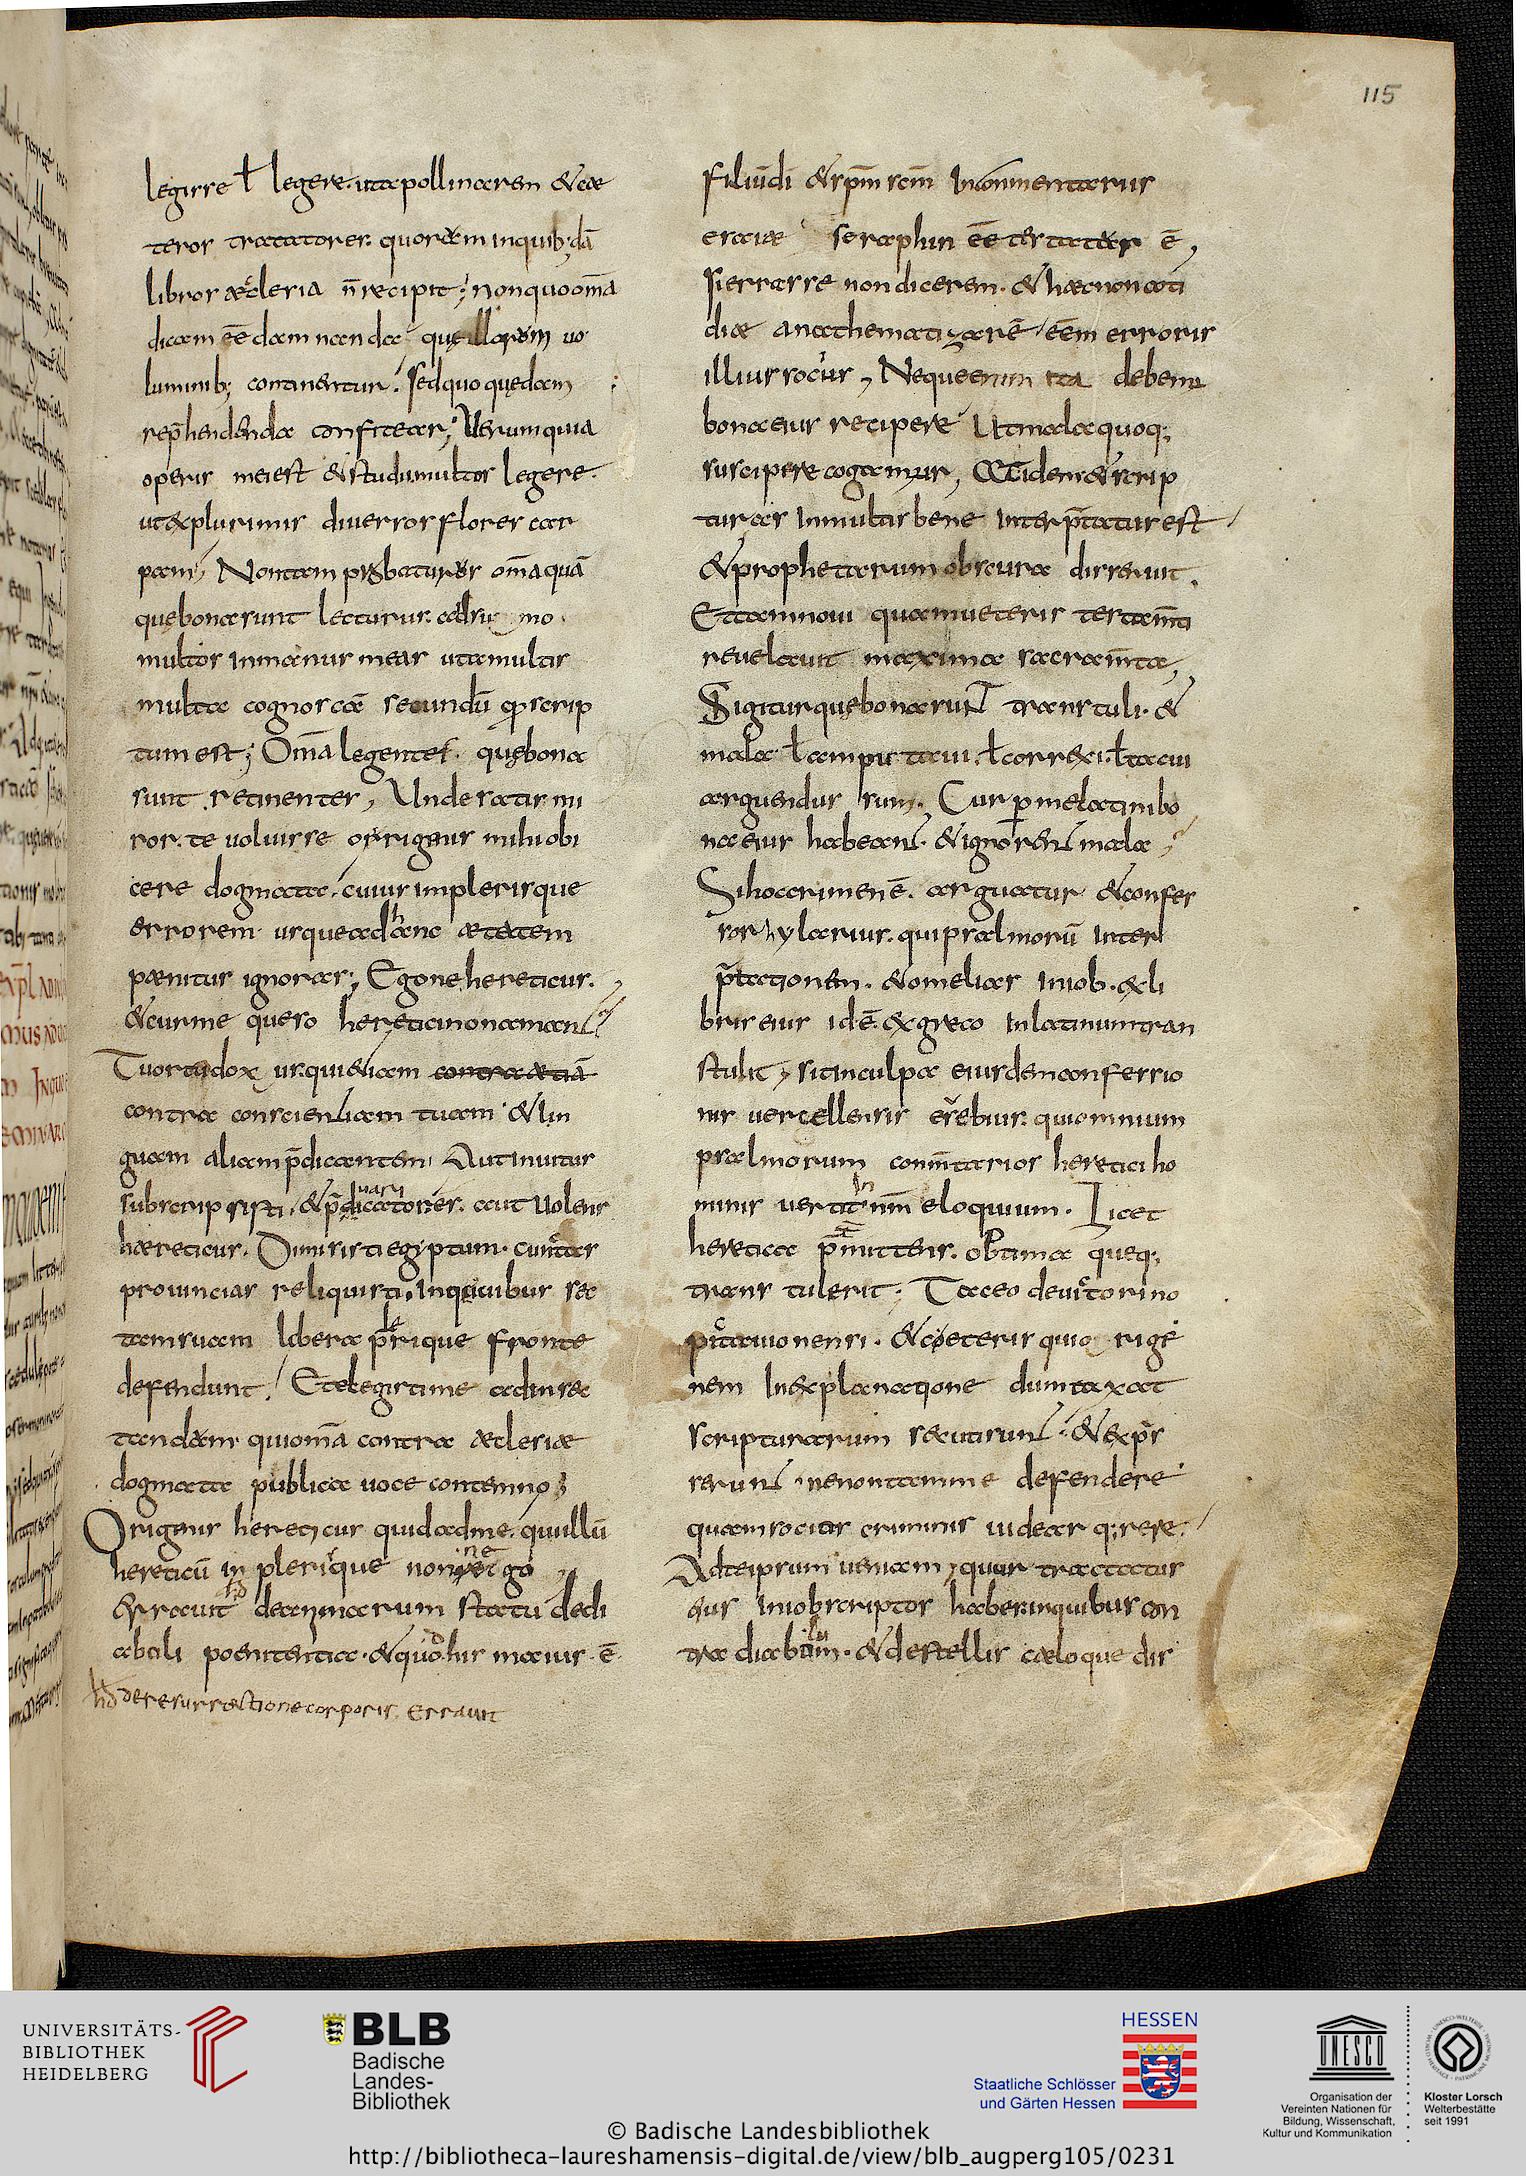 115
legisse ł legere. ut apollinarem & cae
teros tractatores. quorum in quib; dā
libros aecclesia n̄ recipit; non quo om̄a
dicam eē damnanda que illorum uo
luminib; continentur. sed quo quędam
rep̄hendenda confitear; Uerum quia
operis mei est & studii multos legere.
ut explurimis diuersos flores car
pam, Non tam probaturus om̄a quā
quę bona sunt lecturus. adsu mo
multos in manus meas ut a multis
multa cognoscā secundū qd scrip
tum est; Om̄a legentes. quę bona
sunt retinentes, Unde satis mi
ror. te uoluisse origenis mihi obi
cere dogmata. cuius in plerisque
errorem usque ad hanc aetatem
paenitus ignoras; Ego ne hereticus.
& cur me quęso heretici non amant?
Tu ortodoxus. qui etiam contra aetiā
contra conscientiam tuam & lin
guam aliam p̄dicantem. Aut inuitus
subscripsisti. & p̄uaricatores. aut uolens
haereticus. Dimisisti egiptum. cunctas
prouincias reliquisti. In quibus sec
tam suam libera plerique fronte
defendunt. Et elegisti me ad insec
tandum qui om̄a contra aecclesiae
dogmata publica uoce contemno;
Origenes hereticus quid ad me. qui illū
hereticū in plerisque non nego
Errauit hd de animarum statu de di
aboli poenitentia. & quod his maius ē
hd de resurrectione corporis. errauit
filiū di & sp̄m sc̄m In commentariis
esaiae seraphin eē testatus ē,
Si errasse non dicerem. & haec non coti
die anathematizarē eēm erroris
illius socius, Neque enim ita debemus
bona eius recipere Ut mala quoq;
suscipere cogamur, At idem & scrip
turas in multis bene interp̄tatus est
& prophetarum obscura disseruit.
Et tam noui quam ueteris testam̄ti
reuelauit maxima sacram̄ta,
Si igitur quę bona sunt transtuli. &
mala ł amputaui. ł correxi. ł tacui
arguendus sum. Cur per me latini bo
na eius habeant. & ignorent mala
Si hoc crimen ē. arguatur & confes
sor hylarius. qui psalmorū inter
p̄tationem. & omelias in iob. ex li
bris eius id ē. ex greco in latinum tran
stulit, sit in culpa eiusdem confessio
nis uercellensis eusebius. qui omnium
psalmorum comm̄tarios heretici ho
minis uertit in nr̄m eloquium. Licet
heretica p̄mittens. obtima queq;
trans tulerit; Taceo de uictorino
pictauionensi. & coeteris qui o rige
nem In explanatione dumtaxat
scripturarum secuti sunt. & expres
serunt ne non tam me defendere
quam socios criminis uidear q;rere.
Ad te ipsum ueniam, cur tractatus
eius in iob scriptos habes. in quibus con
tra diabolum. & de stellis caeloque dis
UNIVERSITÄTS-
BIBLIOTHEK
HEIDELBERG
BLB
Badische
Landes-
Bibliothek
HESSEN
Staatliche Schlösser
und Gärten Hessen
UNESCO
Organisation der
Vereinten Nationen für
Bildung, Wissenschaft,
Kultur und Kommunikation
Kloster Lorsch
Welterbestätte
seit 1991
© Badische Landesbibliothek
http://bibliotheca-laureshamensis-digital.de/view/blb_augperg105/0231